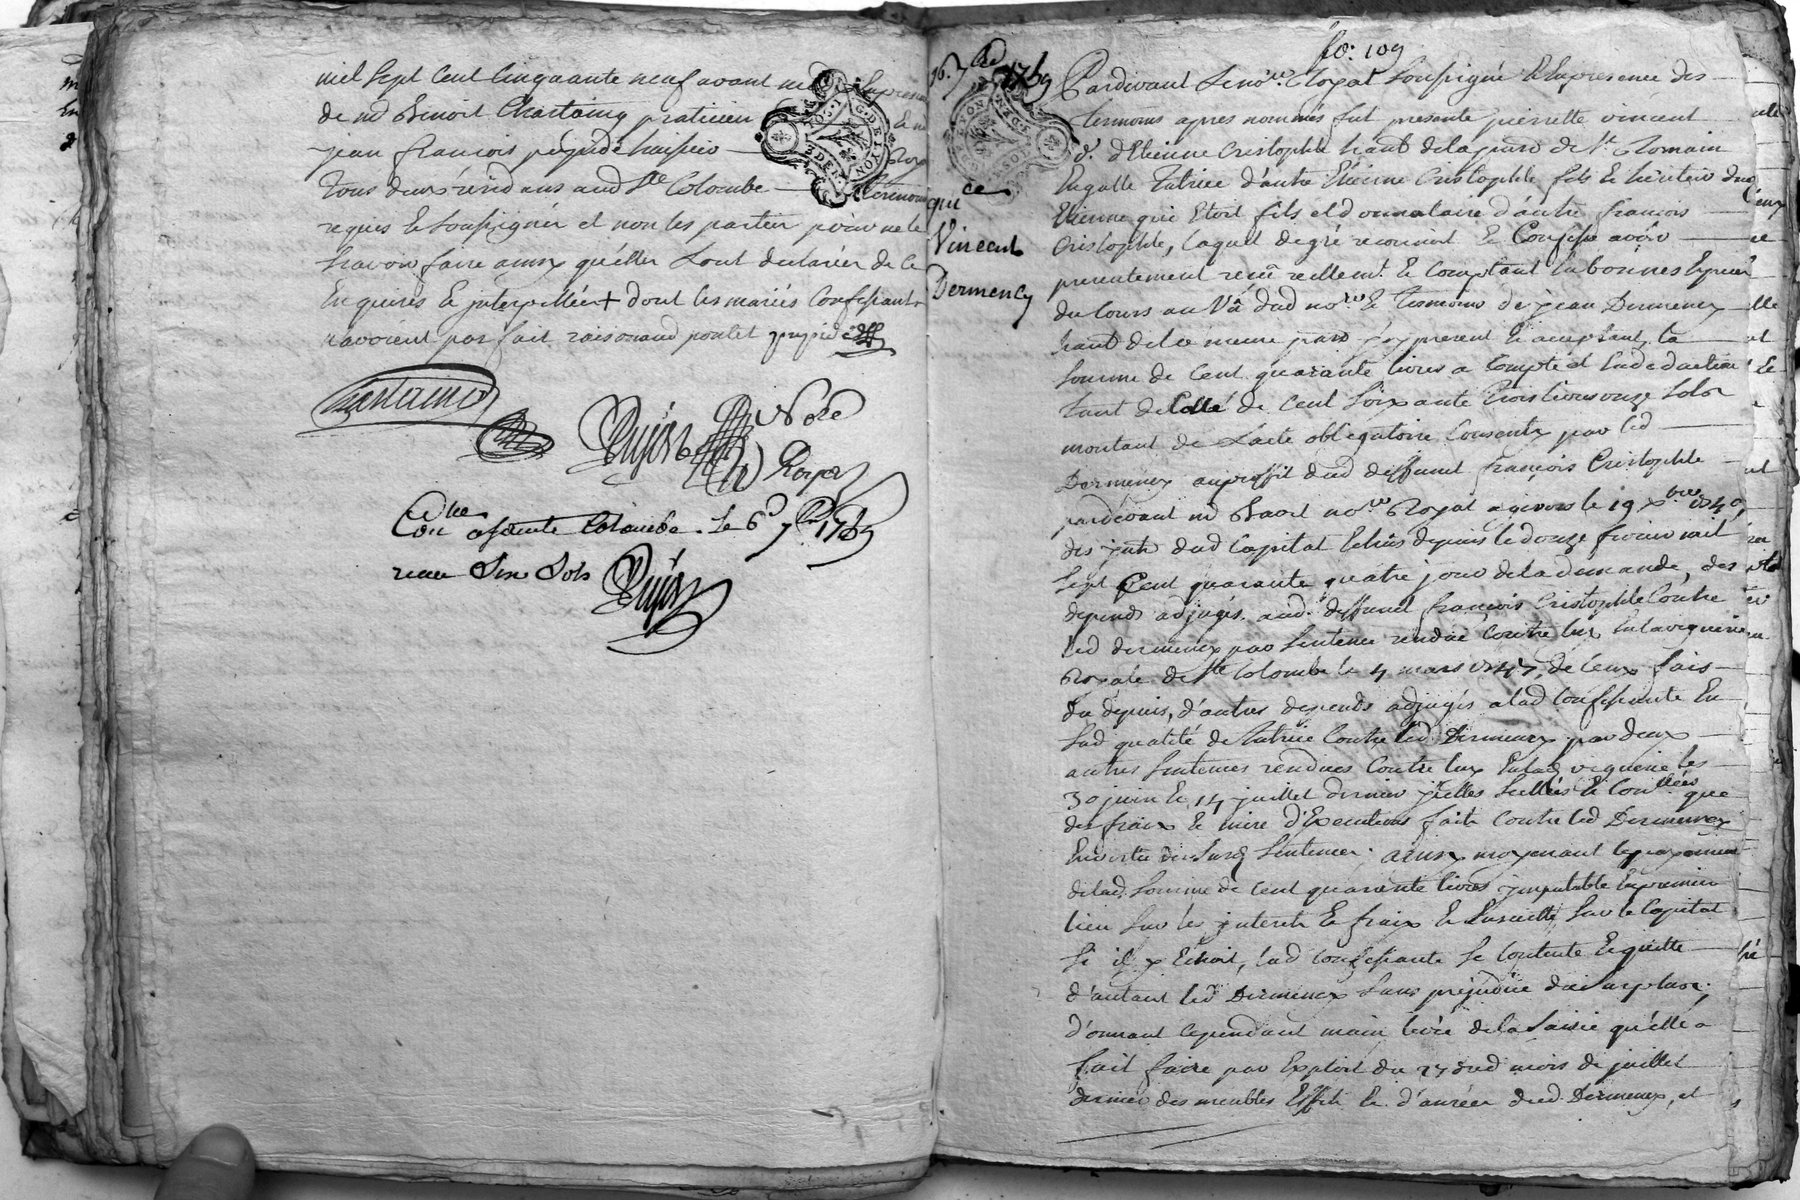 mil sept cent cinquante neuf avant
de md Benoit Chastaing praticien
jean francois
tous deux residans aud Ste Colombe
requis et soussignés et non les parties pour ne le
scavoir faire ainsy quelles sont declarées de ce
enquises et interpellées + dont les mariés confessants
navoient pas fait raison
Chastaing
Dujast Nore
Royer
Conlle a sainte Colombe le 6e 7bre 1759
receu six sols
Dujast
fo: 109
16. 7bre 1759
quice
Vincent
Dermency
Pardevant le nore Royal soussigné et en presence des
temoins apres nommés fut presente pierrette vincent
ve d'Etienne Cristophle habt de la parro de St Romain
en galle tutrice d'autre Etienne Cristophle fils et heritier dud
Etienne qui etoit fils et donnataire d'autre francois
Cristophle, laquelle de gré reconnoit et confesse avoir
presentement receu reellemt et comptant en bonnes especes
du cours au vû dud nore et temoins de jean Dermency
habt de lad meme parro icy present et acceptant la
somme de cent quarante livres a compte et en deduction
tant de celle de cent soixante trois livres onze sols
montant de l'acte obligatoire consenty par led
Dermency au proffit dud deffunt françois Cristophle
pardevant md nore Royal a givors le 19 xbre 1740,
des jnts dud Capital echus depuis le douze fevrier mil
sept cent quarante quatre jour de la demande, des
depends adjugés aud deffunt françois Cristophle contre
led dermency par sentence rendue contre luy en la viguerie
Royale de Ste Colombe le 4 mars 1747, de ceux fais
du depuis, d'autres depends adjugés a lad confessante en
sad qualité de tutrice contre led Dermency par deux
autres sentences rendues contre luy en lad viguerie les
30 juin et 14 juillet dernier jcelles scellées et conllées que
des frais et mise d'executions faits contre led Dermency
en vertu des susd sentences; ainsy moyenant le payement
de lad somme de cent quarente livres jmputable en premier
lieu sur les jnterets et frais et ensuitte sur le Capital
si il y echoit, lad confessante se contente et quitte
d'autant led Dermency sans prejudice du surplus;
d'onnant cependant main levée de la saisie qu'elle a
fait faire par exploit du 27 dud mois de juillet
dernier des meubles effets et d'anrées dud Dermency, et